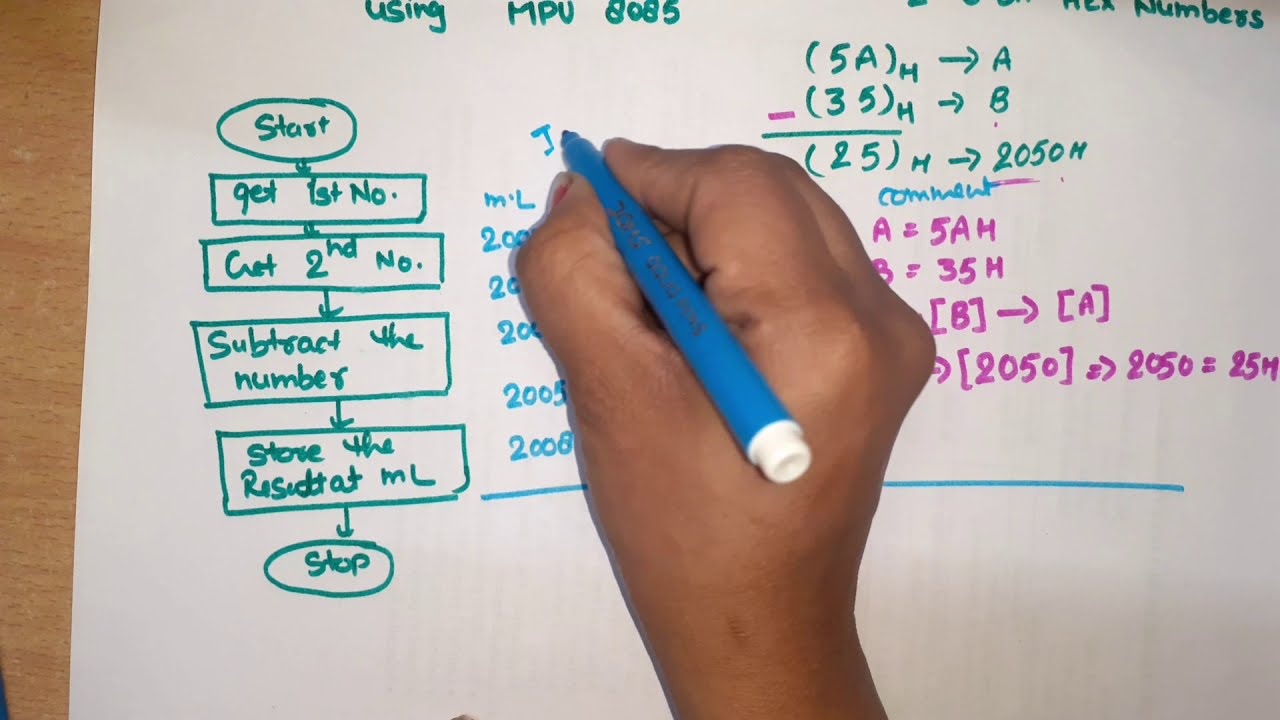 using MPU 8085
Hex Numbers
(5A)H → A
- (35)H → B
(25)H → 2050H
Start
get 1st No.
Get 2nd No.
Subtract the
number
Store the
Result at mL
Stop
m.L
comment
A = 5AH
B = 35H
[B] → [A]
[2050] ⇒ 2050 = 25H
2005
2008